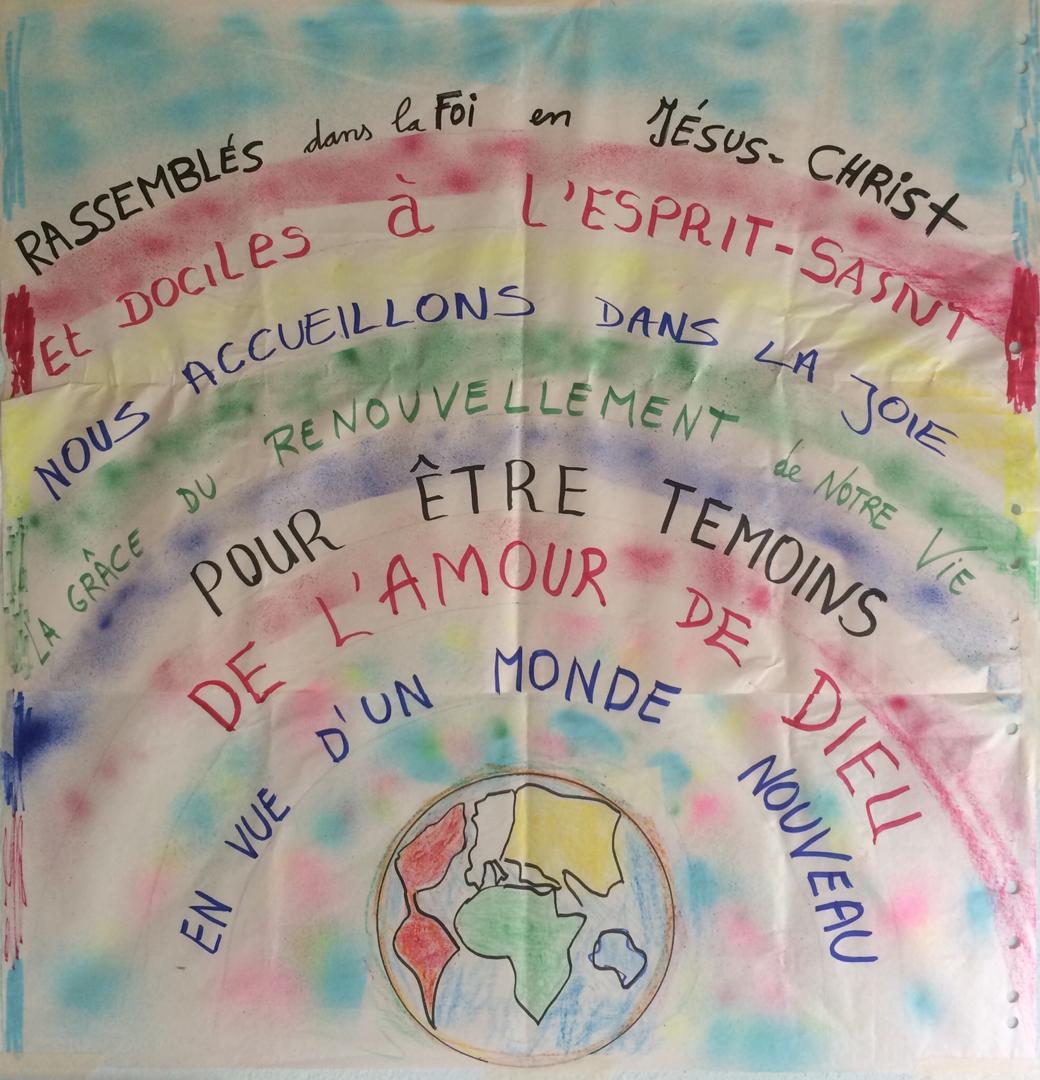 RASSEMBLÉS dans la Foi en JÉSUS-CHRiSt
Et DOCiLES à L'ESPRIT-SAINT
NOUS ACCUEILLONS DANS LA JOIE
LA GRÂCE DU RENOUVELLEMENT de NOTRE ViE
POUR ÊTRE TEMOINS
DE L'AMOUR DE DIEU
EN VUE D'UN MONDE NOUVEAU